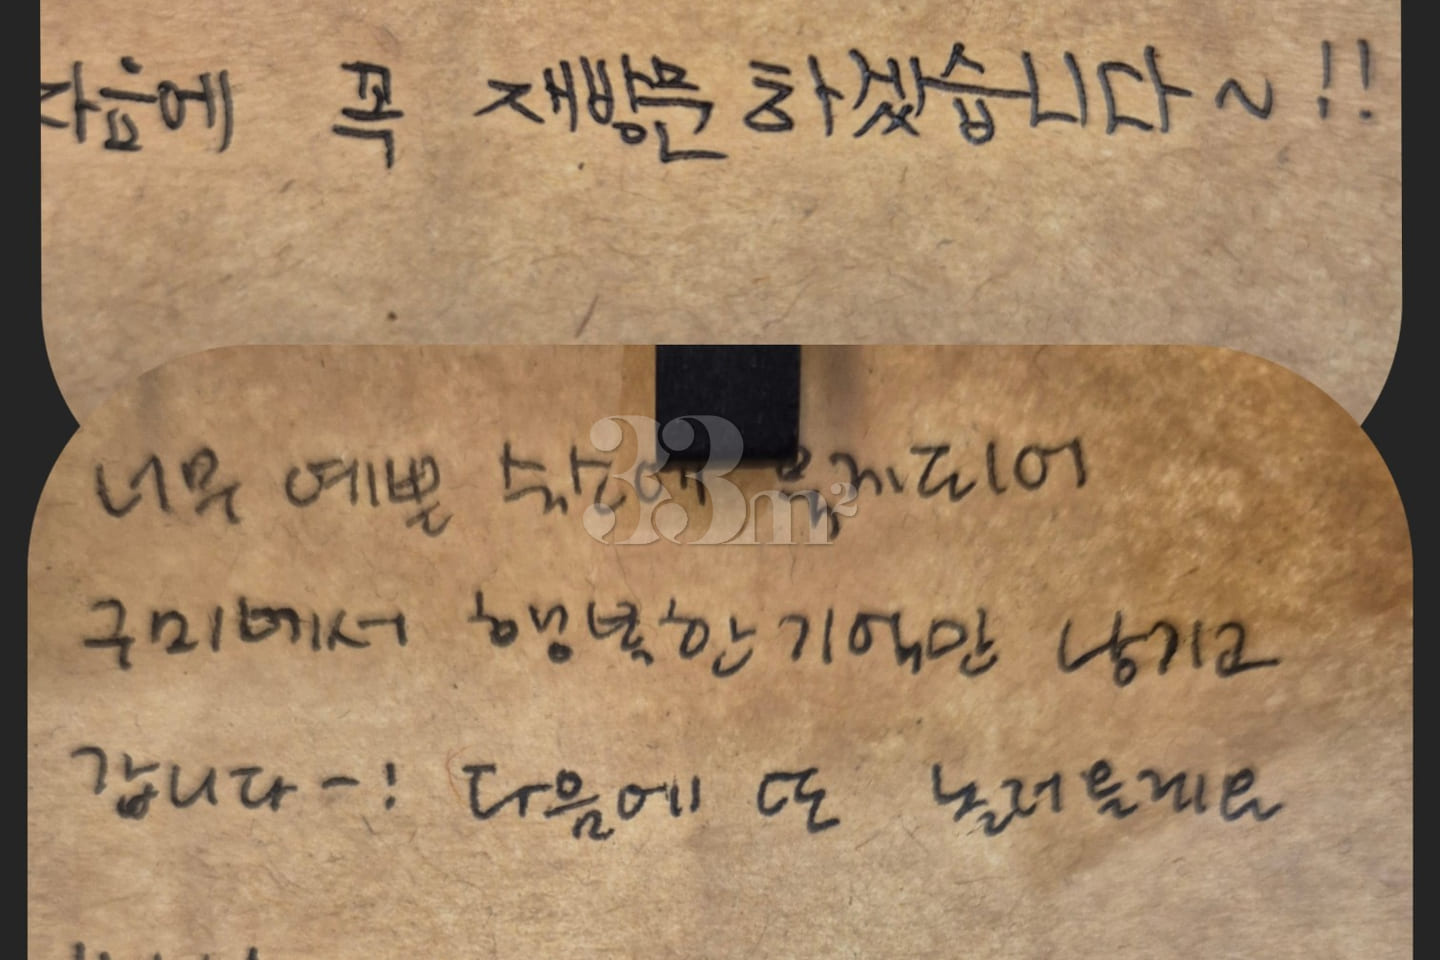 다음에 꼭 재방문 하겠습니다~!!
33m²
너무 예쁜 숙소에 오게되어
구미에서 행복한 기억만 남기고
갑니다-! 다음에 또 놀러올게요